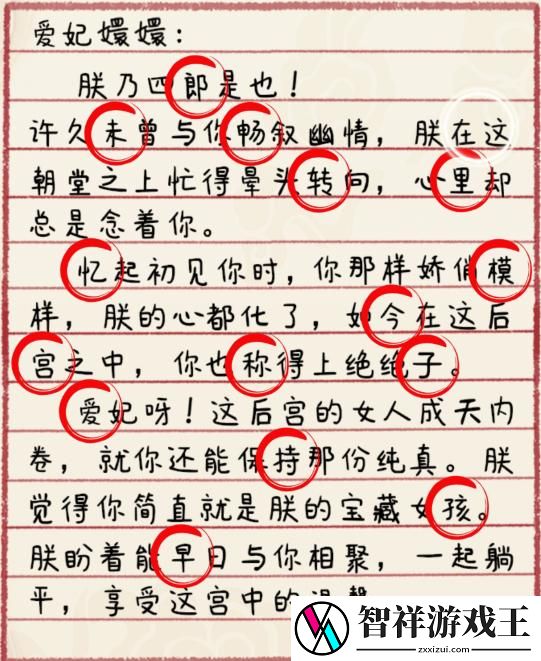 爱妃嬛嬛：
朕乃四郎是也！
许久未曾与你畅叙幽情，朕在这
朝堂之上忙得晕头转向，心里却
总是念着你。
忆起初见你时，你那样娇俏模
样，朕的心都化了，如今在这后
宫之中，你也称得上绝绝子。
爱妃呀！这后宫的女人成天内
卷，就你还能保持那份纯真。朕
觉得你简直就是朕的宝藏女孩。
朕盼着能早日与你相聚，一起躺
平，享受这宫中的
智祥游戏王
zxxizui.com